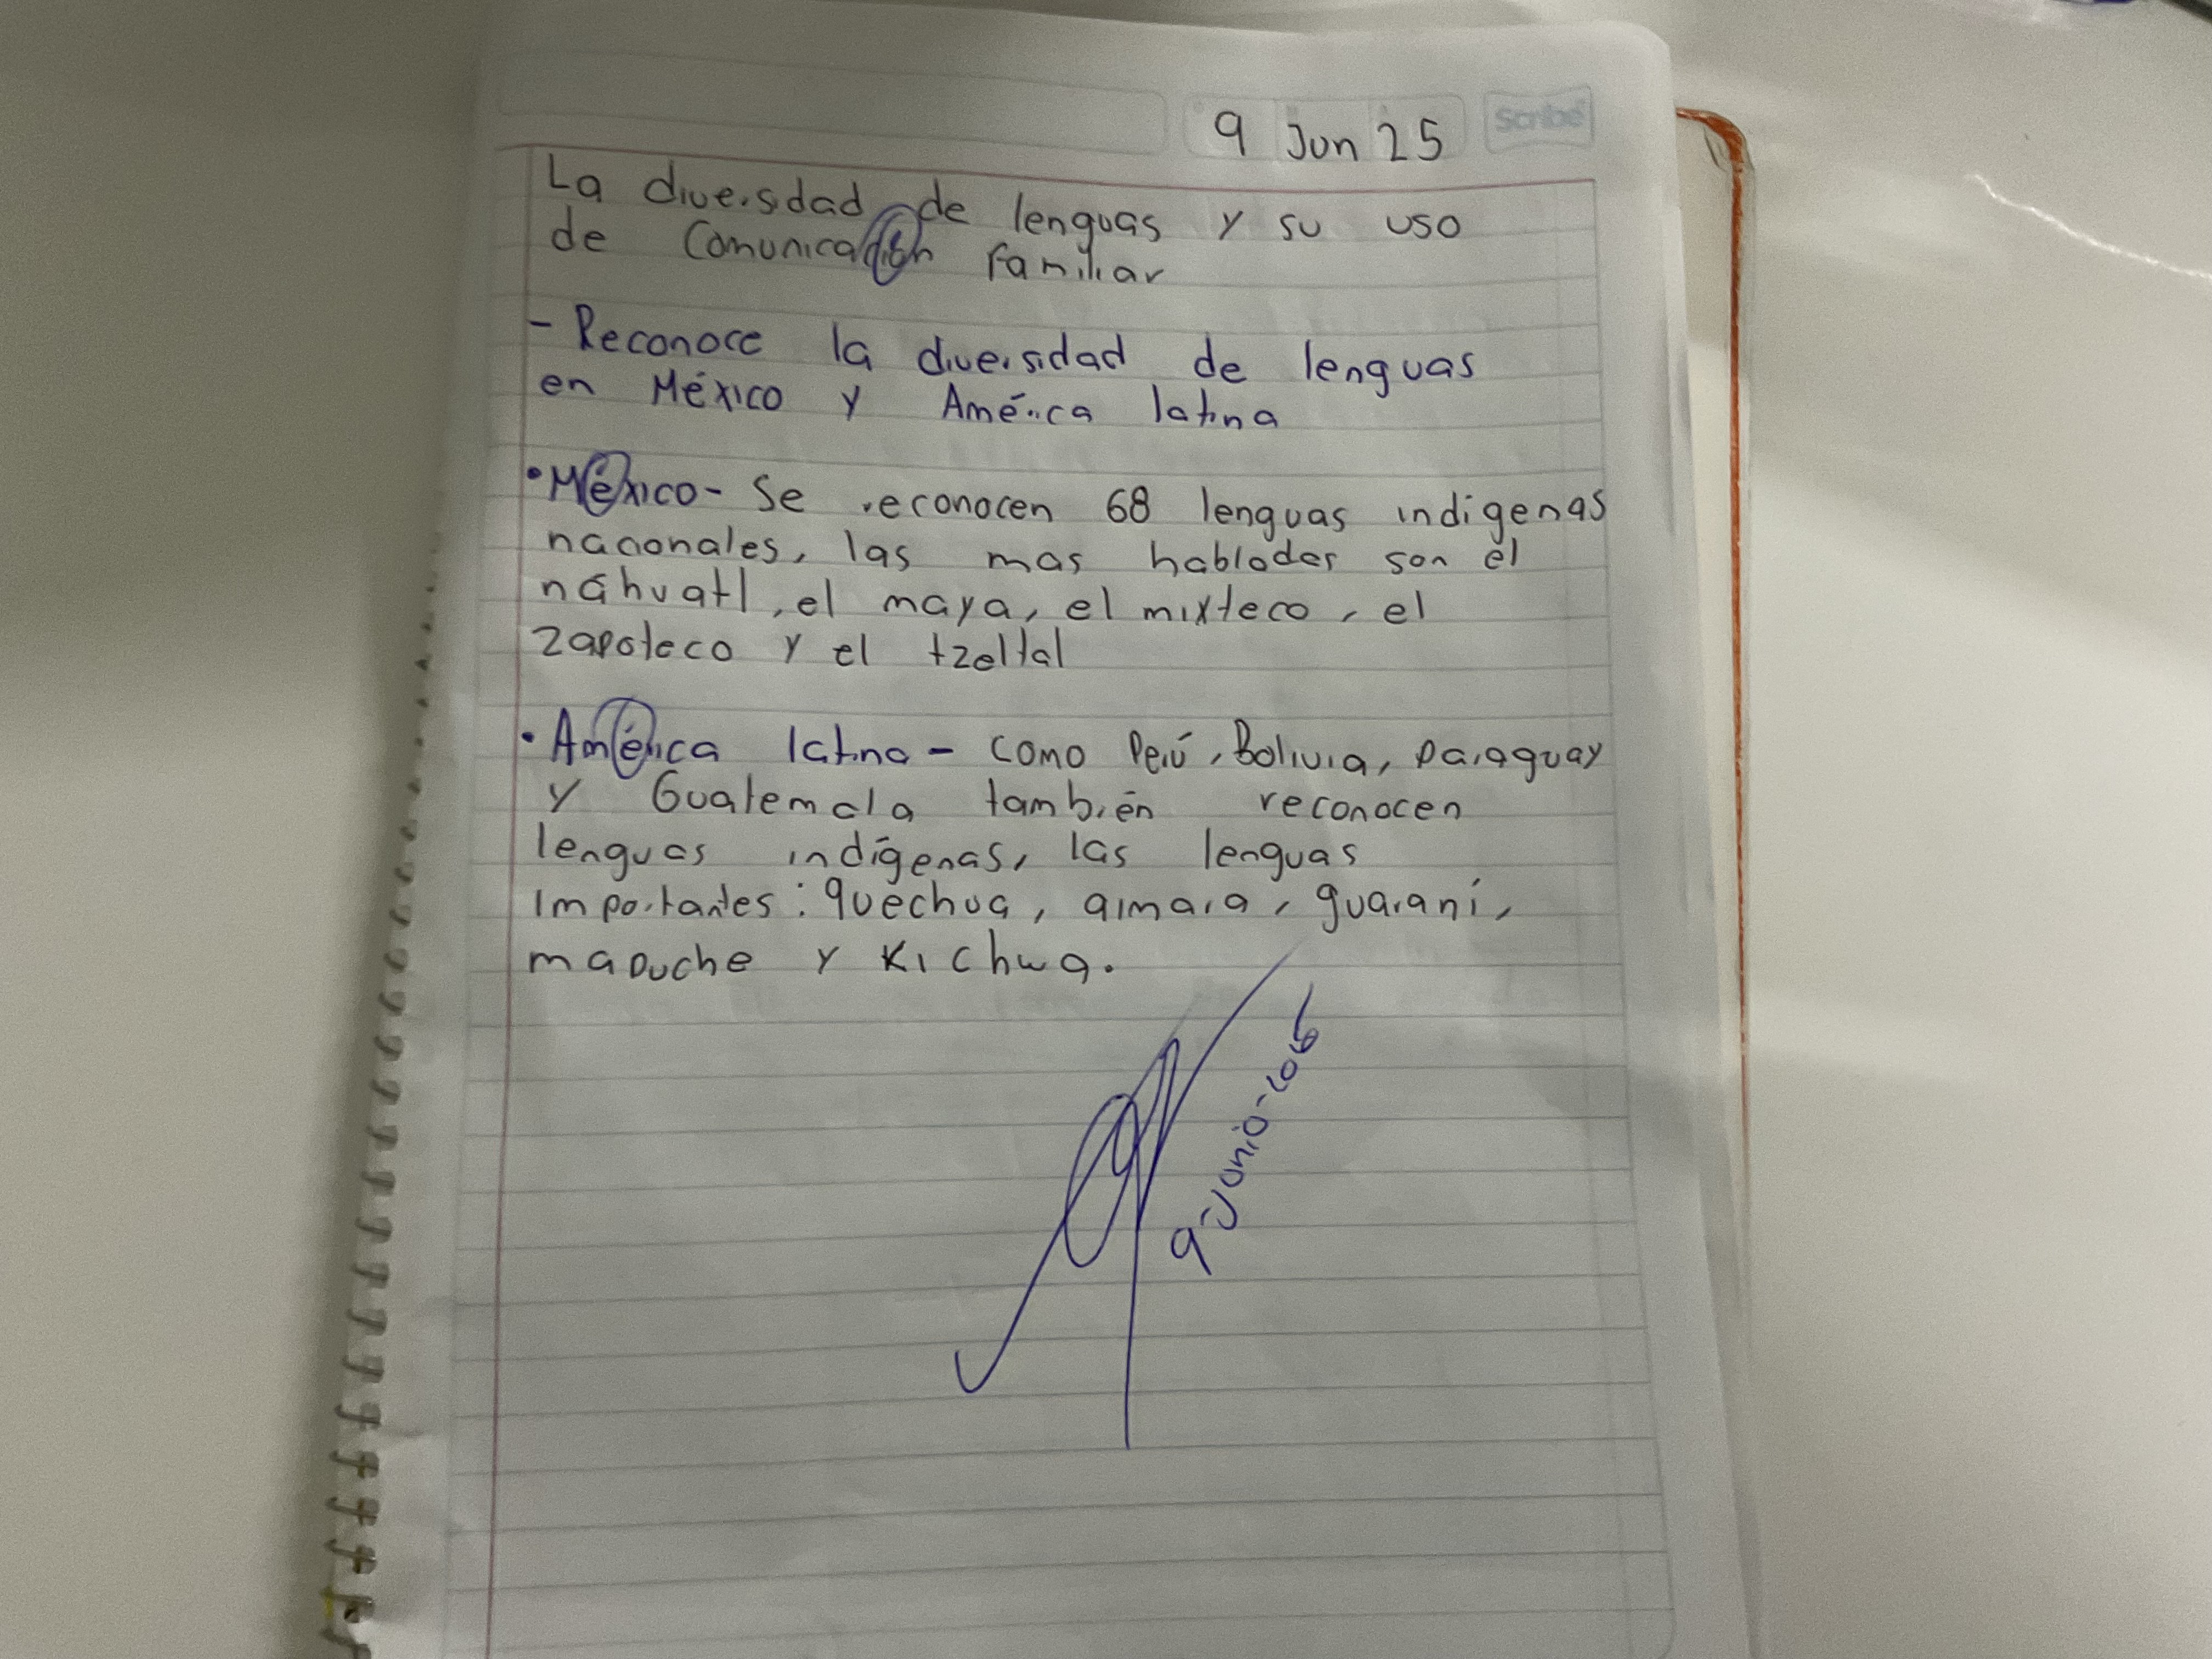 9 Jun 25
Scribe
La diversidad de lenguas y su uso
de Comunicación familiar
- Reconoce la diversidad de lenguas
en México y América latina
• México - Se reconocen 68 lenguas indigenas
nacionales, las mas habladas son el
náhuatl, el maya, el mixteco, el
zapoteco y el tzeltal
• América latina - como Perú, Bolivia, paraguay
y Guatemala también reconocen
lenguas indígenas, las lenguas
importantes: quechua, aimara, guaraní,
mapuche y Kichwa.
9-Junio-